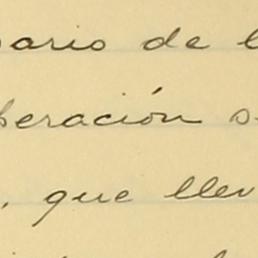 sario de l
peración s
, que llev